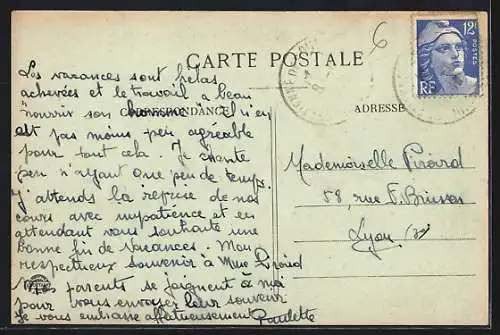 CARTE POSTALE
CORRESPONDANCE
ADRESSE
12F
POSTES
RF
6
Les vacances sont hélas
achevées et le travail a beau
"nourrir son homme" il n'en
est pas moins peu agréable
pour tout cela. Je chante
peu n'ayant que peu de temps.
J'attends la reprise de nos
cours avec impatience et en
attendant vous souhaite une
bonne fin de vacances. Mon
respectueux souvenir à Mme Pirard
Mes parents se joignent à moi
pour vous envoyer leur souvenir
Je vous embrasse affectueusement Paulette
Mademoiselle Pirard
58, rue F.
Lyon